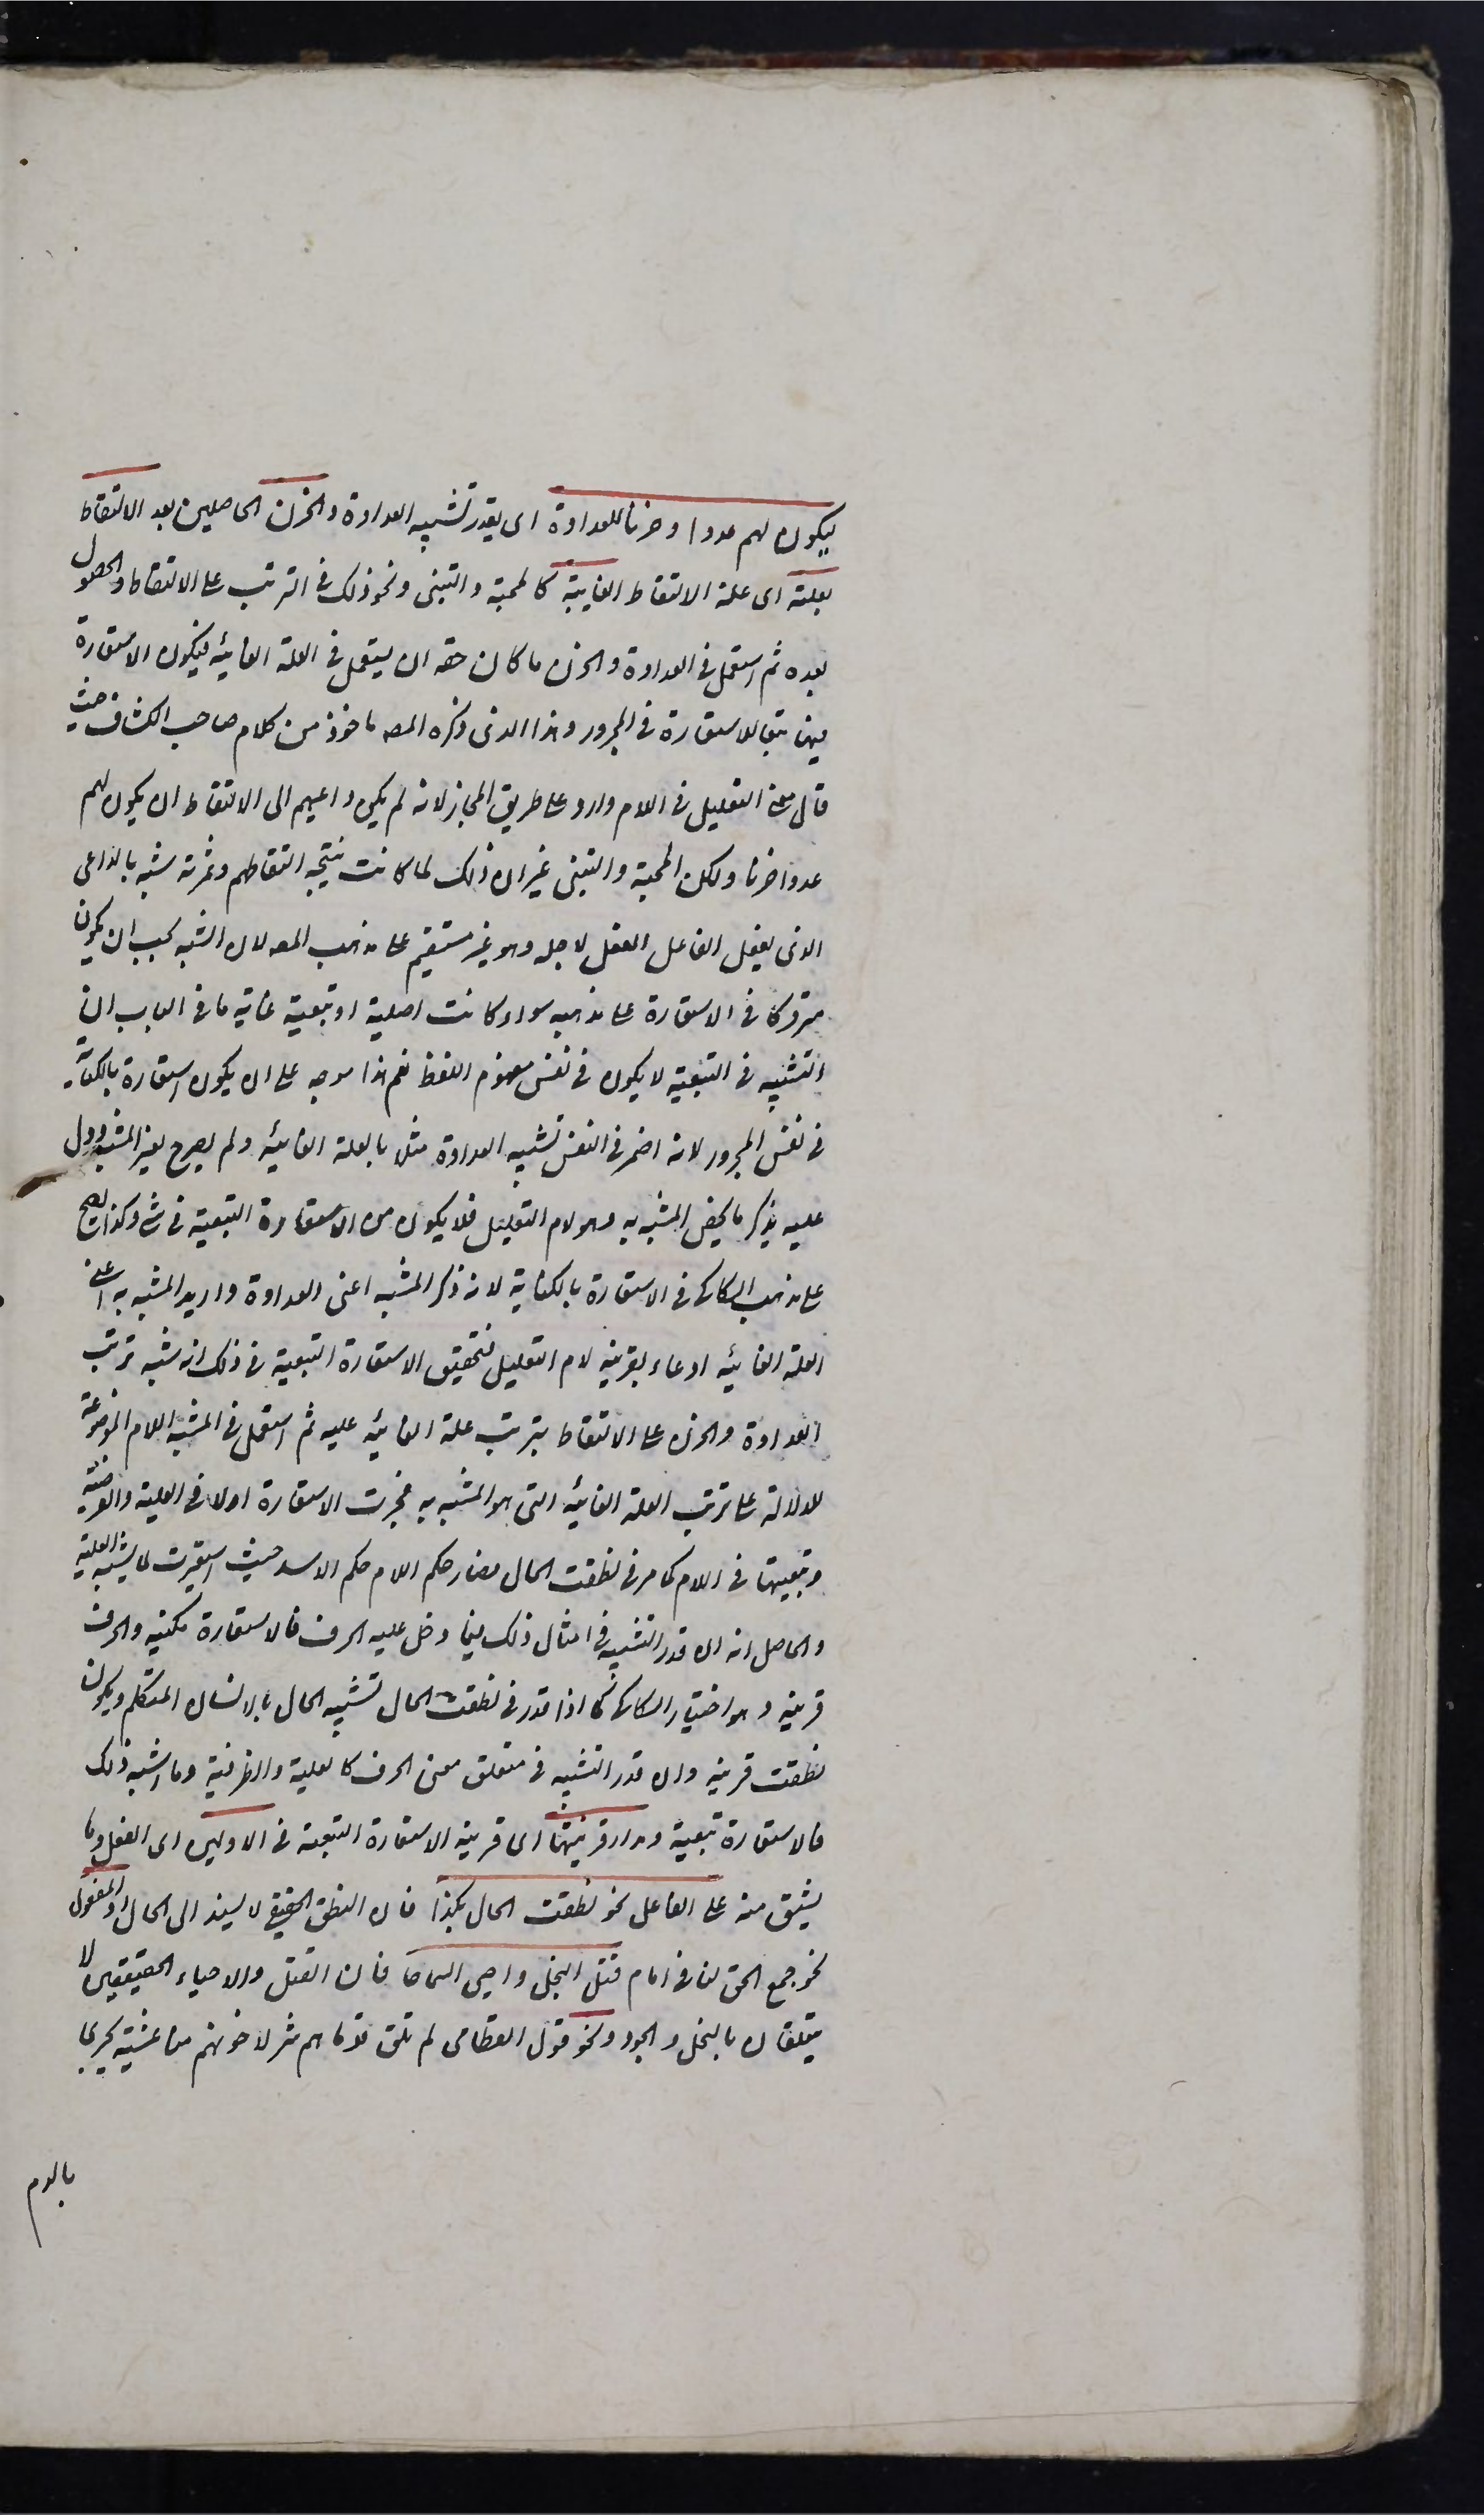 ليكون لهم عدوا وحزنا للعداوة اى يقدر تشبيه العداوة والحزن الحاصلين بعد الالتقاط
بعلته اى علة الالتقاط الغاية كالمحبة والتبنى ونحو ذلك فى الترتب على الالتقاط والحصول
بعده ثم استعمل فى العداوة والحزن ما كان حقه ان يستعمل فى العلة الغائية فيكون الاستعارة
فيها تبعا للاستعارة فى المجرور وهذا الذى ذكره المصـ ماخوذ من كلام صاحب الكشاف حيث
قال معنى التعليل فى اللام وارد على طريق المجاز لانه لم يكن داعيهم الى الالتقاط ان يكون لهم
عدوا حزنا ولكن المحبة والتبنى غير ان ذلك لما كانت نتيجة التقاطهم وثمرته شبه بالداعى
الذى يفعل الفاعل الفعل لاجله وهو غير مستقيم على مذهب المصـ لان المشبه يجب ان يكون
متروكا فى الاستعارة على مذهبه سواء كانت اصلية او تبعية غاية ما فى الباب ان
التشبيه فى التبعية لا يكون فى نفس مفهوم اللفظ نعم هذا موجه على ان يكون استعارة بالكناية
فى نفس المجرور لانه اضمر فى النفس تشبيه العداوة مثلا بالعلة الغائية ولم يصرح بغير المشبه ودل
عليه بذكر ما يخص المشبه به وهو لام التعليل فلا يكون من الاستعارة التبعية فى شئ وكذا يصح
على مذهب السكاكى فى الاستعارة بالكناية لانه ذكر المشبه اعنى العداوة واريد المشبه به اعنى
العلة الغائية ادعاء بقرينة لام التعليل فتحقيق الاستعارة التبعية فى ذلك انه شبه ترتب
العداوة والحزن على الالتقاط بترتب علة الغائية عليه ثم استعمل فى المشبه اللام الموضوعة
للدلالة على ترتب العلة الغائية التى هو المشبه به فجرت الاستعارة اولا فى العلية والغرضية
وتبعيتها فى اللام كما مر فى نطقت الحال فصار حكم اللام حكم الاسد حيث استعيرت لما يشبه العلية
والحاصل انه ان قدر التشبيه فى امثال ذلك فيما دخل عليه الحرف فالاستعارة مكنية والحرف
قرينة وهو اختيار السكاكى كما اذا قدر فى نطقت الحال تشبيه الحال بالانسان المتكلم ويكون
نطقت قرينة وان قدر التشبيه فى متعلق معنى الحرف كالعلية والظرفية وما اشبه ذلك
فالاستعارة تبعية ومدار قرينتها اى قرينة الاستعارة التبعية فى الاولين اى الفعل وما
يشتق منه على الفاعل نحو نطقت الحال بكذا فان النطق الحقيقى لا يسند الى الحال او المفعول
نحو جمع الحق لنا فى امام قتل البخل واحيى السماحا فان القتل والاحياء الحقيقيين لا
يتعلقان بالبخل والجود ونحو قول القطامى لم تلق قوما هم شر لاخوتهم منا عشية يجرى
بالدم